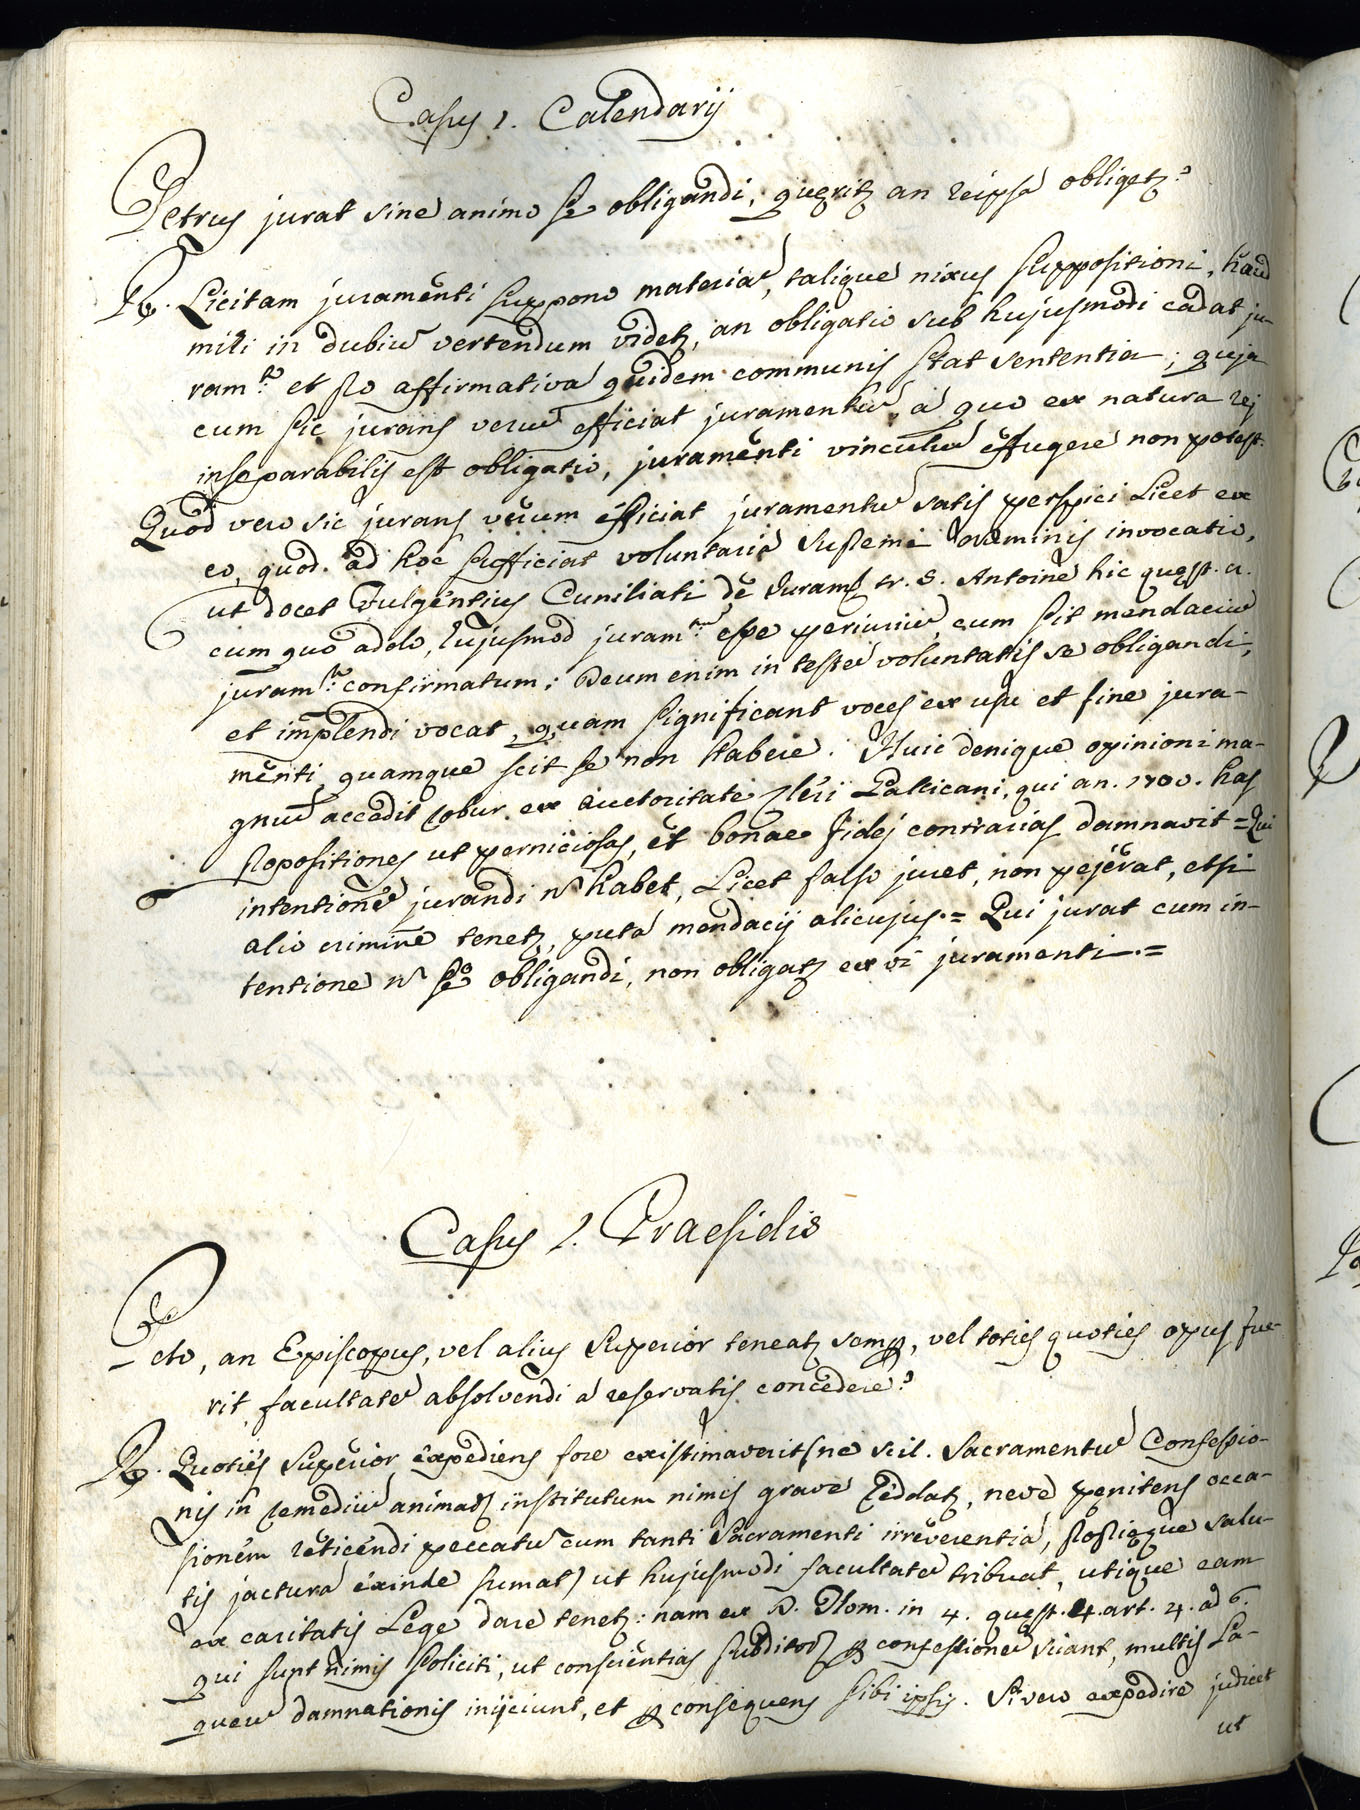 Casus 1. Calendarij
Petrus jurat sine animo se obligandi; quęritꝫ an reipsa obligetꝫ?
℞. Licitam juramenti suppono materiã, talique nixus suppositioni, haud
mihi in dubiũ vertendum videtꝫ, an obligatio sub hujusmodi cadat ju-
ram.to et pro affirmativa quidem communis stat sententia; quia
cum sic jurans verũ efficiat juramentũ, a quo ex natura rej
inseparabilis est obligatio, juramenti vinculũ effugere non potest.
Quod vero sic jurans verum efficiat juramentũ satis perspici licet ex
eo, quod ad hoc sufficiat voluntaria supremi Numinis invocatio,
ut docet Fulgentius Cuniliati de Juram. tr. 5. Antoine hic quęst. 
cum quo addo, hujusmod juram.tum esse periuriũ, cum sit mendaciũ
juram.to confirmatum; Deum enim in testẽ voluntatis se obligandi,
et implendi vocat, quam significant voces ex usu et fine jura-
menti, quamque scit se non habere. Huic denique opinioni ma-
gnũ accedit robur ex auctoritate Cleri Gallicani, qui an. 1700. has
propositiones ut perniciosas, et bonae fidej contrarias damnavit = Qui
intentionẽ jurandi ñ habet, licet falso juret, non pejerat, etsi
alio crimine tenetꝫ, puta mendacij alicujus. = Qui jurat cum in-
tentione ñ se obligandi, non obligatꝫ ex vi juramenti. =
Casus 1. Praesidis
Pęto, an Episcopus, vel alius Superior teneatꝫ semꝑ, vel toties quoties opus fue-
rit facultatẽ absolvendi a reservatis concedere?
℞. Quoties Superior expediens fore existimaverit (ne scil. Sacramentũ Confessio-
nis in remediũ animaꝝ institutum nimis grave reddatꝫ, neve penitens occa-
sionem reticendi peccatũ cum tanti Sacramenti irreverentia, proprięque salu-
tis jactura exinde sumat) ut hujusmodi facultatẽ tribuat, utique eam
ex caritatis Lege dare tenetꝫ: nam ex D. Thom. in 4. quęst. 4. art. 4. ad 6.
qui sunt nimis soliciti, ut conscientias subditoꝝ ꝑ confessionẽ sciant, multis la-
queũ damnationis injiciunt, et ꝑ consequens sibi ipsis. Si vero expedire judicet
ut